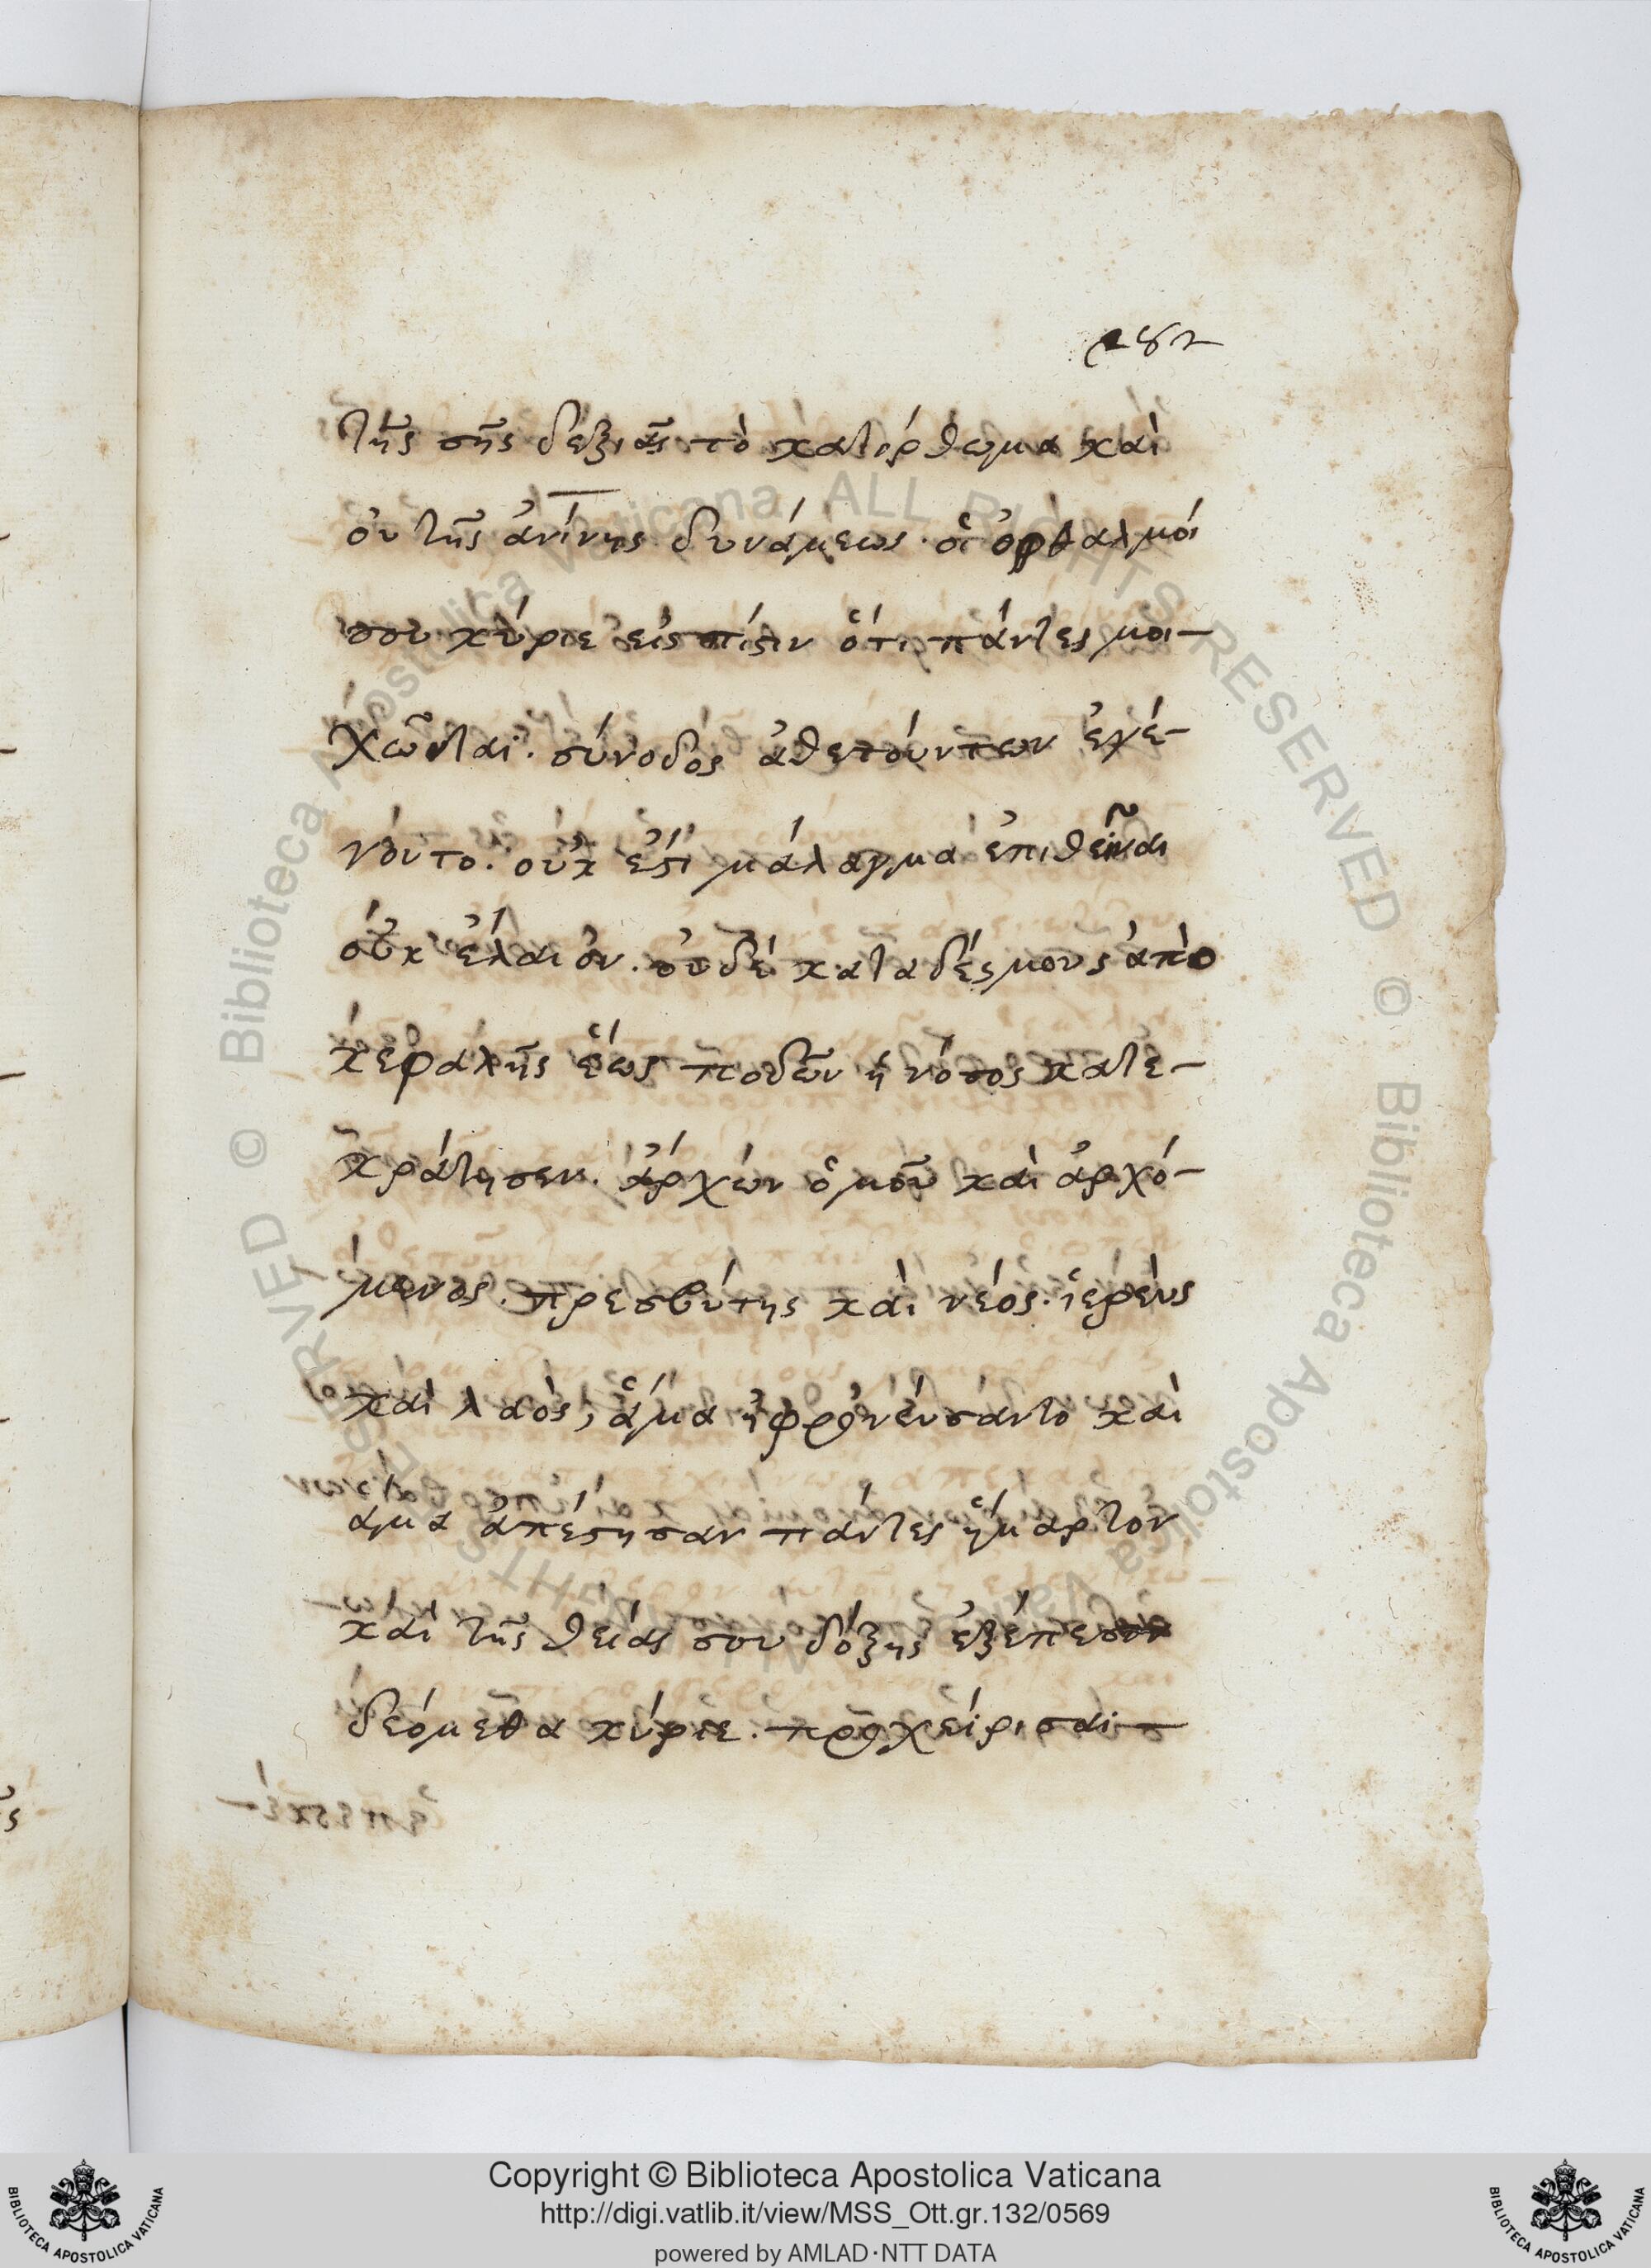 282
τῆς σῆς δεξιᾶς τὸ κατόρθωμα καὶ
οὐ τῆς ἀνίνης δυνάμεως. οἱ ὀφθαλμοί
σου κύριε εἰς πίστιν ὅτι πάντες μοι-
χῶνται. σύνοδος ἀθετούντων ἐγέ-
νοντο. οὐκ ἔστι μάλαγμα ἐπιθεῖναι
οὐκ ἔλαιον. οὐδὲ καταδέσμους ἀπὸ
κεφαλῆς ἕως ποδῶν ἡ νόσος κατε-
κράτησεν. ἄρχων ὁμοῦ καὶ ἀρχό-
μενος. πρεσβύτης καὶ νέος. ἱερεὺς
καὶ λαὸς, ἅμα ἠφρονεύσαντο καὶ
ἅμα ἀπέστησαν πάντες ἥμαρτον
καὶ τῆς θείας σου δόξης ἐξέπεσον
δεόμεθα κύριε. προχείρισαι
Copyright © Biblioteca Apostolica Vaticana
http://digi.vatlib.it/view/MSS_Ott.gr.132/0569
powered by AMLAD·NTT DATA
BIBLIOTECA APOSTOLICA VATICANA
BIBLIOTECA APOSTOLICA VATICANA
© Biblioteca Apostolica Vaticana ALL RIGHTS RESERVED
© Biblioteca Apostolica Vaticana ALL RIGHTS RESERVED